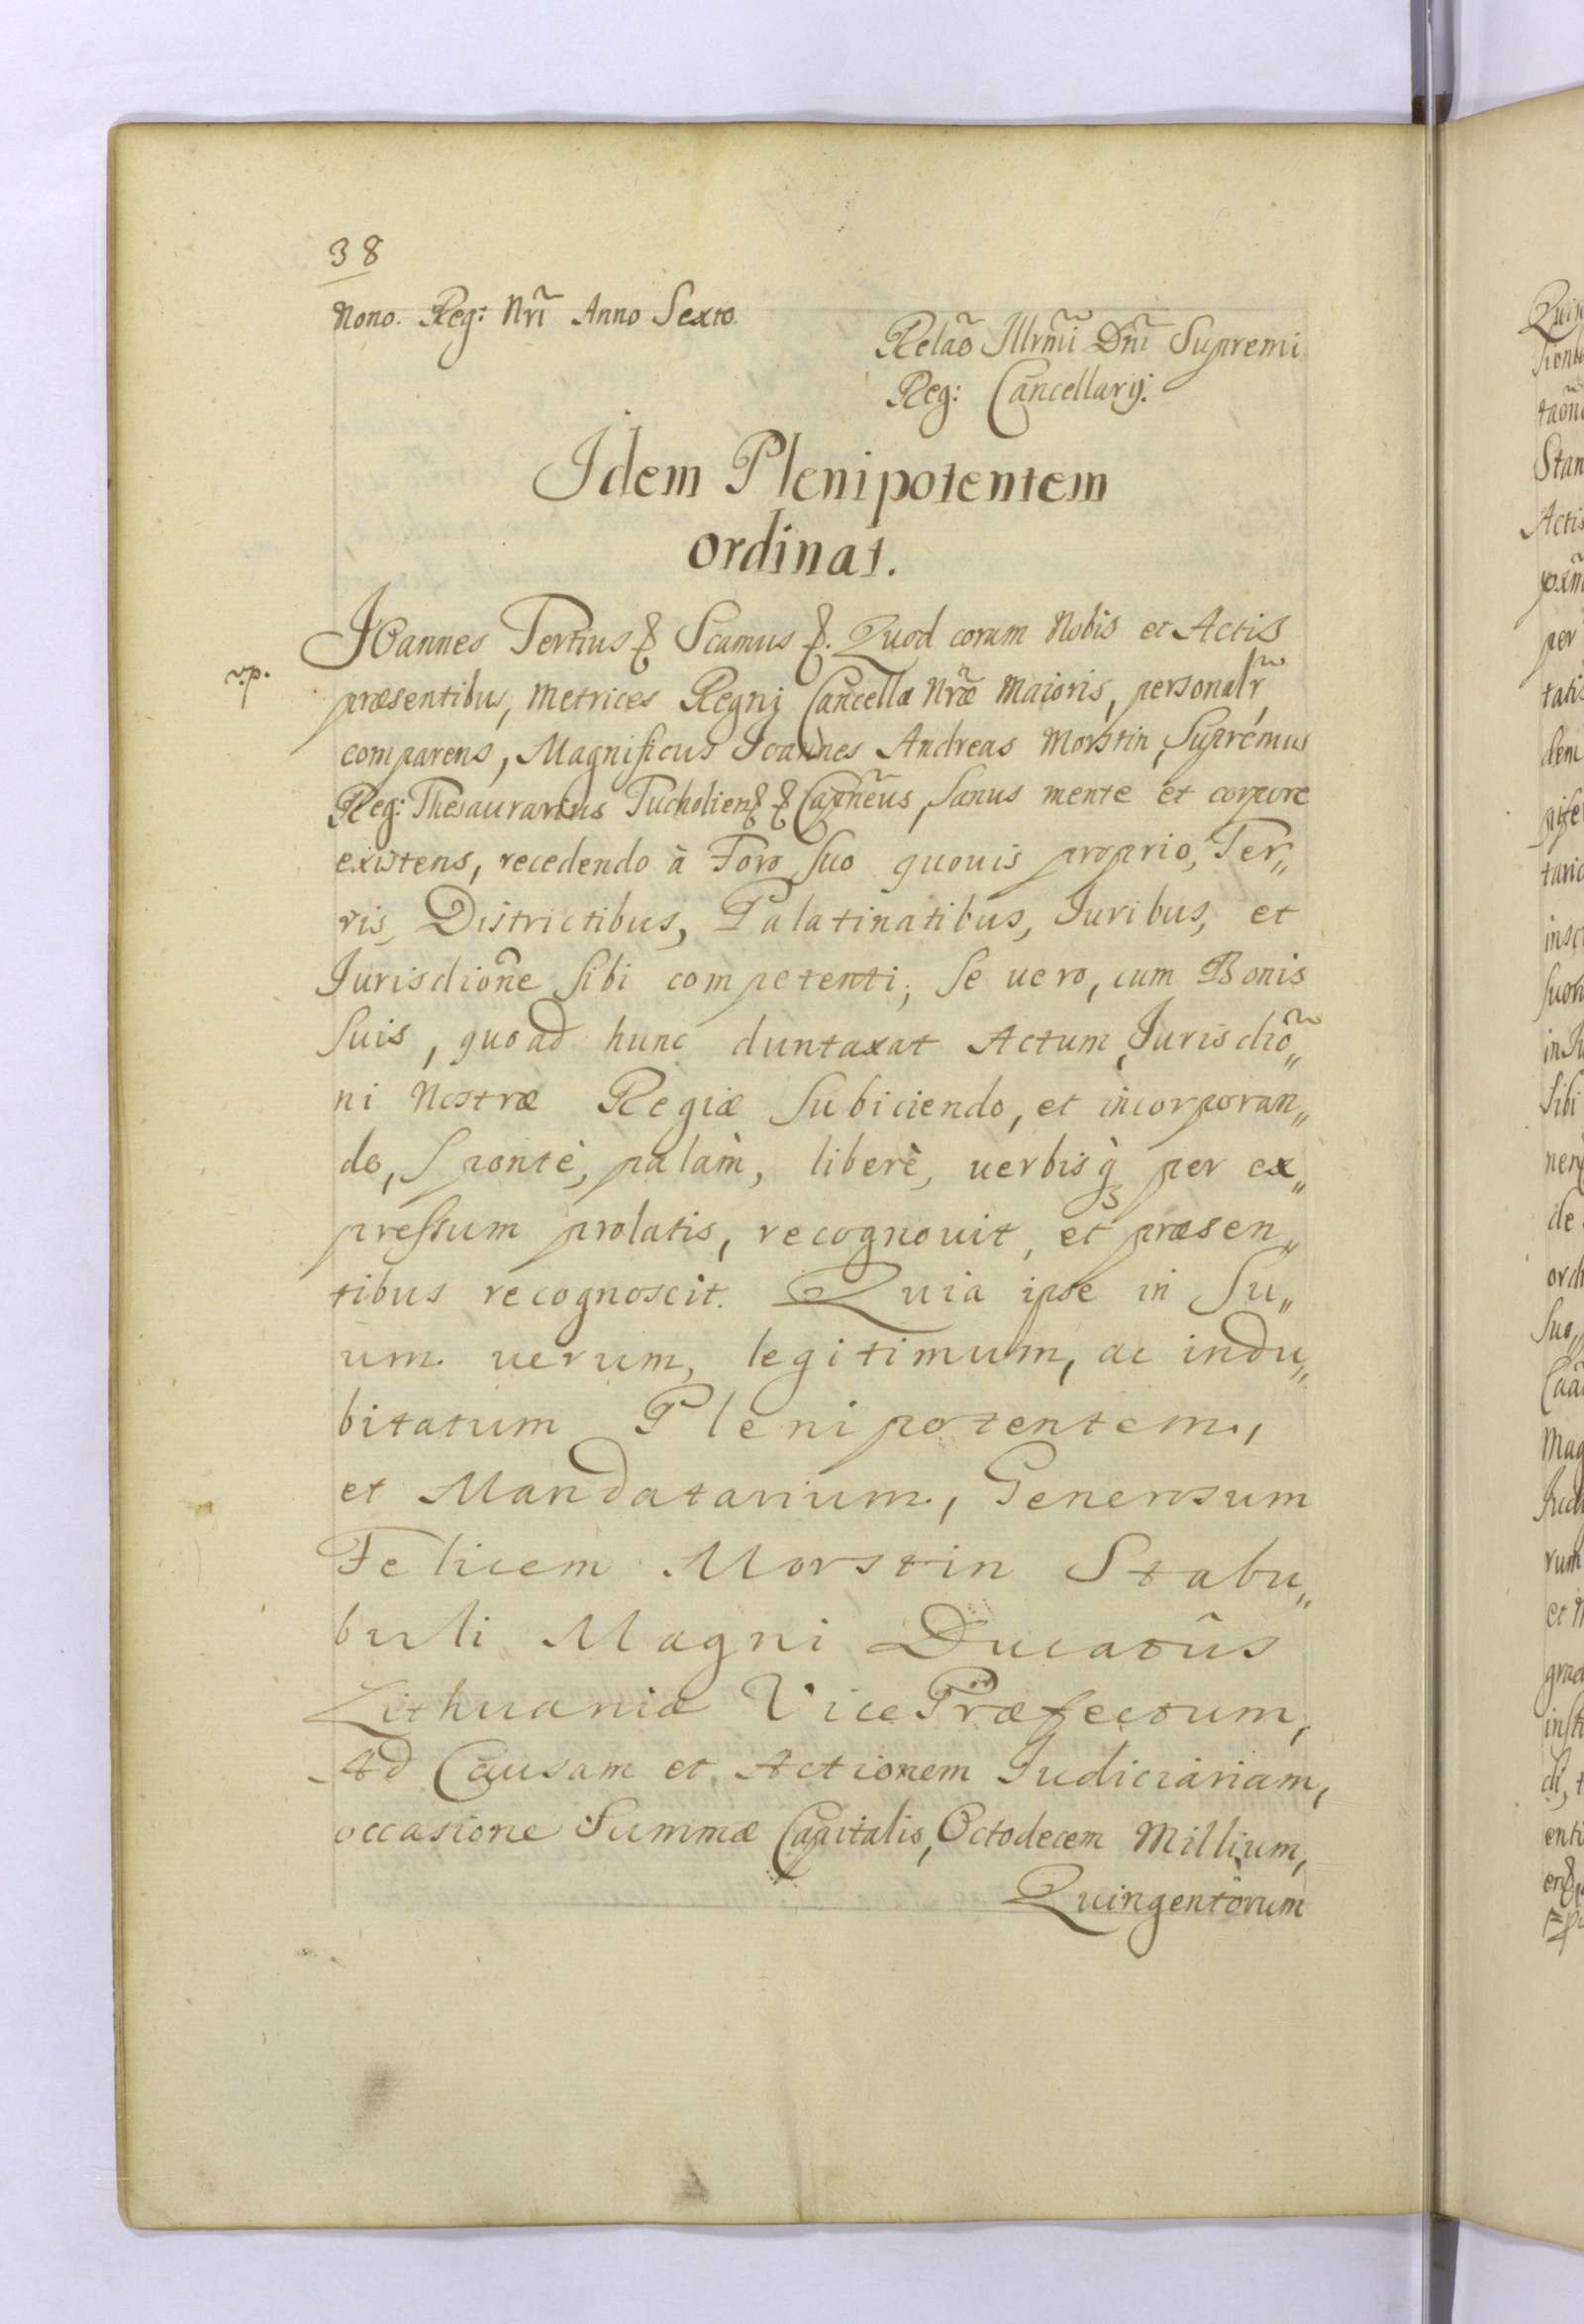 38
Nono. Reg: Nrĩ Anno Sexto.
Relaõ Illrmĩ Dnĩ Supremi
Reg: Cancellarij.
Idem Plenipotentem
ordinat.
JOannes Tertius & Scamus &. Quod coram Nobis et Actis
v.p.
præsentibus, Metrices Regnj Cancellæ Nræ̃ Maioris, personalr̃
comparens, Magnificus Joannes Andreas Morstin, Suprémus
Reg: Thesaurarius Tucholien & & Capnẽus, Sanus mente et corpore
existens, recedendo à Foro Suo quouis proprio, Ter„
ris, Districtibus, Palatinatibus, Juribus, et
Jurisdiõne Sibi competenti; Se uero, cum Bonis
Suis, quoad hunc duntaxat Actum, Jurisdiõ„
ni Nostræ Regiæ Subiciendo, et incorporan„
do, Spontè, palàm, liberè, uerbisq; per ex„
pressum prolatis, recognouit, et præsen„
tibus recognoscit. Quia ipse in Su„
um uerum, legitimum, ac indu„
bitatum Plenipotentem,
et Mandatarium, Generosum
Felicem Morstin Stabu„
buli Magni Ducatûs
Lithuaniæ Vice Præfectum,
Ad Causam et Actionem Judiciariam,
occasione Summæ Capitalis, Octodecem Millium,
Quingentorum